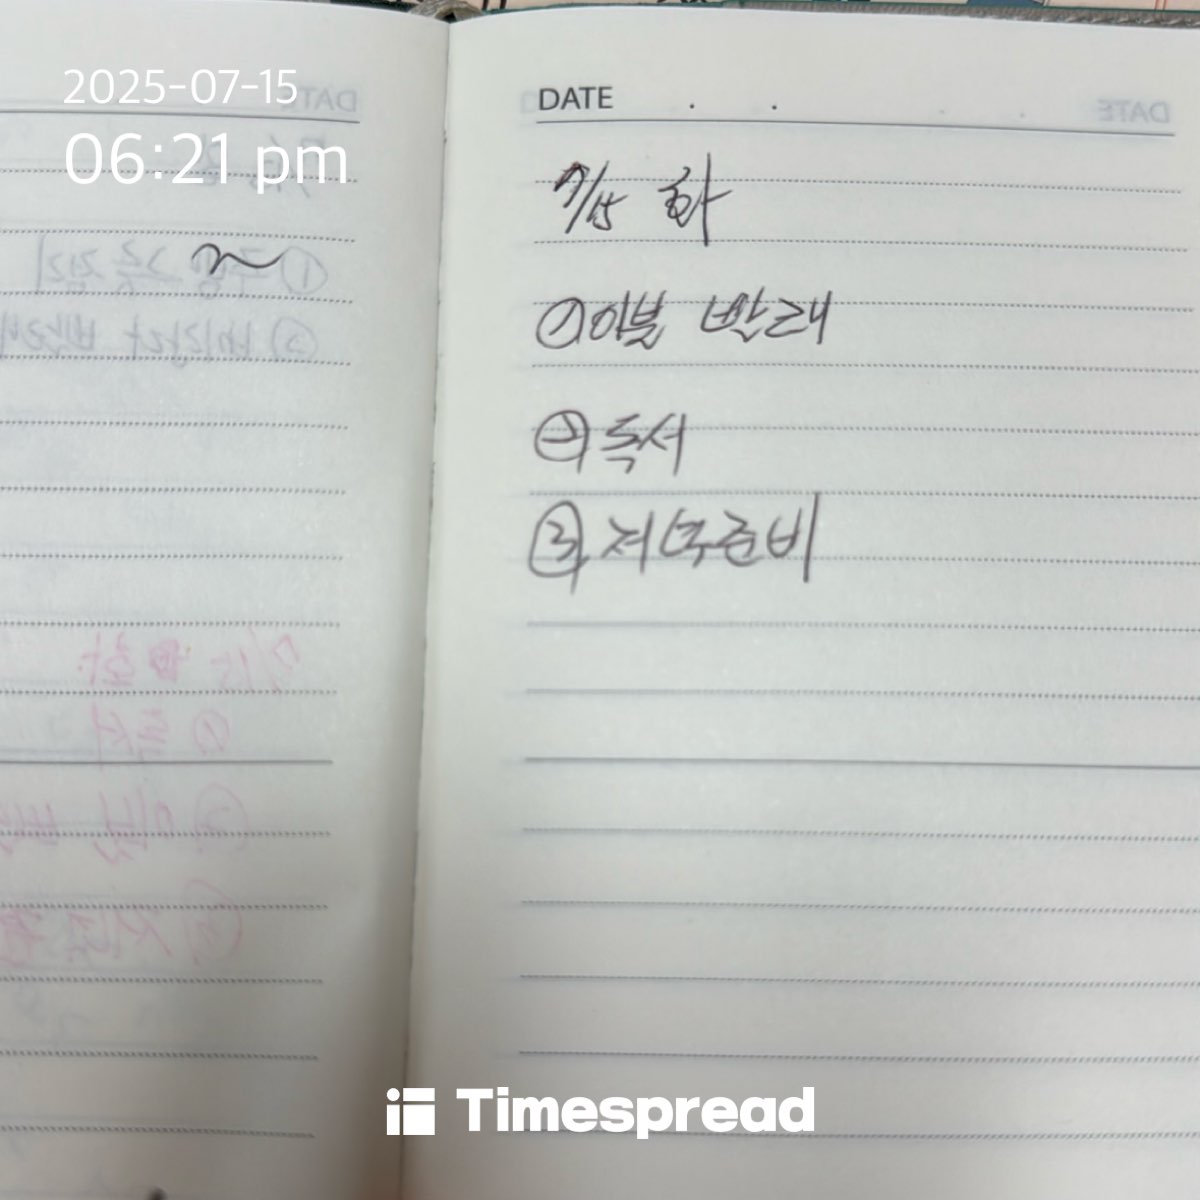 2025-07-15
06:21 pm
DATE . .
7/15 화
① 이불 빨래
② 독서
③ 저녁준비
Timespread